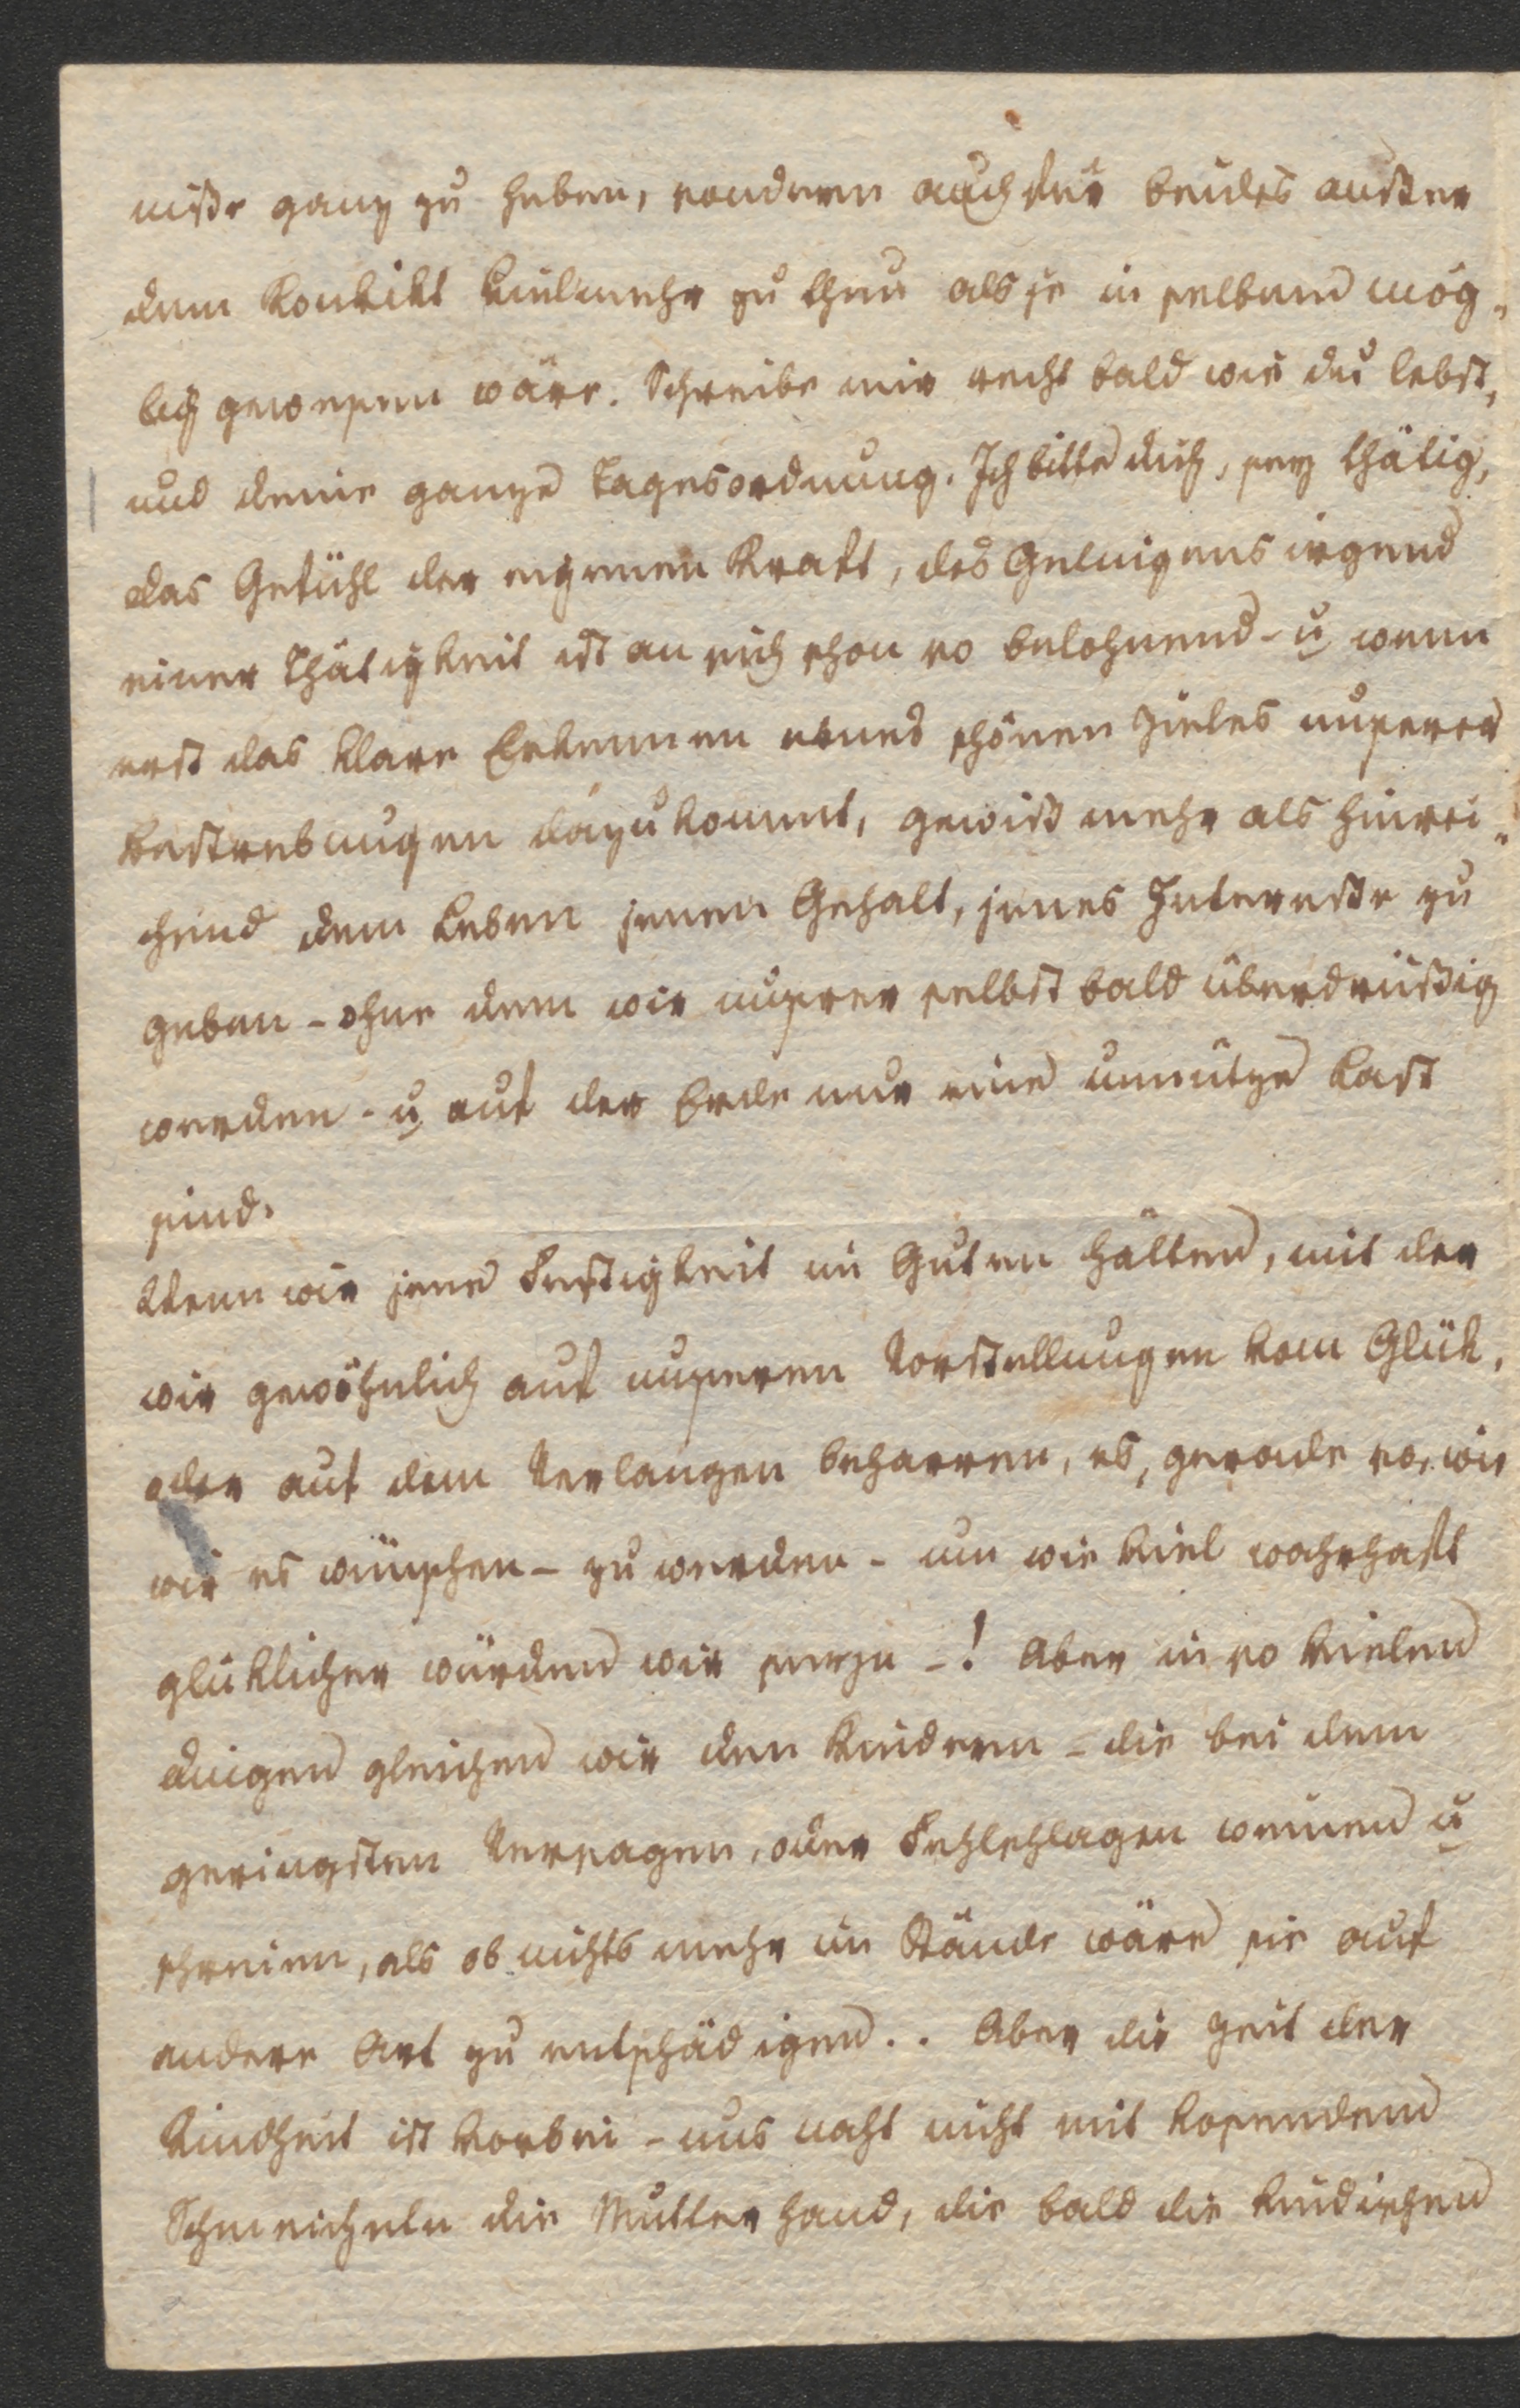 niße ganz zu heben, sondern auch dir beides außer
dem Konvikt vielmehr zu thun als je in selbem mög„
lich gewesen wäre. Schreibe mir recht bald wie du lebst,
und deine ganze Tagesordnung. Ich bitte dich, sey thätig,
das Gefühl der eigenen Kraft, des Gelingens irgend
einer Thätigkeit ist an sich schon so belohnend - u wenn
erst das klare Erkennen eines schönen Zieles unserer
Bestrebungen dazu kommt, gewiß mehr als hinrei„
chend dem Leben jenen Gehalt, jenes Intereße zu
geben - ohne dem wir unsrer selbst bald überdrüßig
werden - u auf der Erde nur eine unnütze Last
sind.
Wenn wir jene Festigkeit im Guten hätten, mit der
wir gewöhnlich auf unseren Vorstellungen vom Glük,
oder auf dem Verlangen beharren, es, gerade so, wie
wir es wünschen - zu werden - um wie viel wahrhaft
glüklicher würden wir seyn -! Aber in so vielen
dingen gleichen wir den Kindern - die bei dem
geringsten Versagen, oder Fehlschlagen weinen u
schreien, als ob nichts mehr im Stande wäre sie auf
andere Art zu entschädigen.. Aber die Zeit der
Kindheit ist vorbei - uns naht nicht mit kosendem
Schmeicheln die Mutterhand, die bald die kindischen